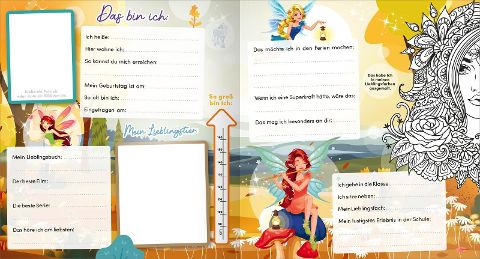 Das bin ich:
Ich heiße:
Hier wohne ich:
So kannst du mich erreichen:
Mein Geburtstag ist am:
So alt bin ich:
Eingetragen am:
So groß
bin ich:
Mein Lieblingstier:
Mein Lieblingsbuch:
Der beste Film:
Die beste Serie:
Das höre ich am liebsten:
Das möchte ich in den Ferien machen:
Wenn ich eine Superkraft hätte, wäre das:
Das mag ich besonders an dir:
Das habe ich
in meinen
Lieblingsfarben
ausgemalt.
Ich gehe in die Klasse:
Ich sitze neben:
Mein Lieblingsfach:
Mein lustigstes Erlebnis in der Schule: